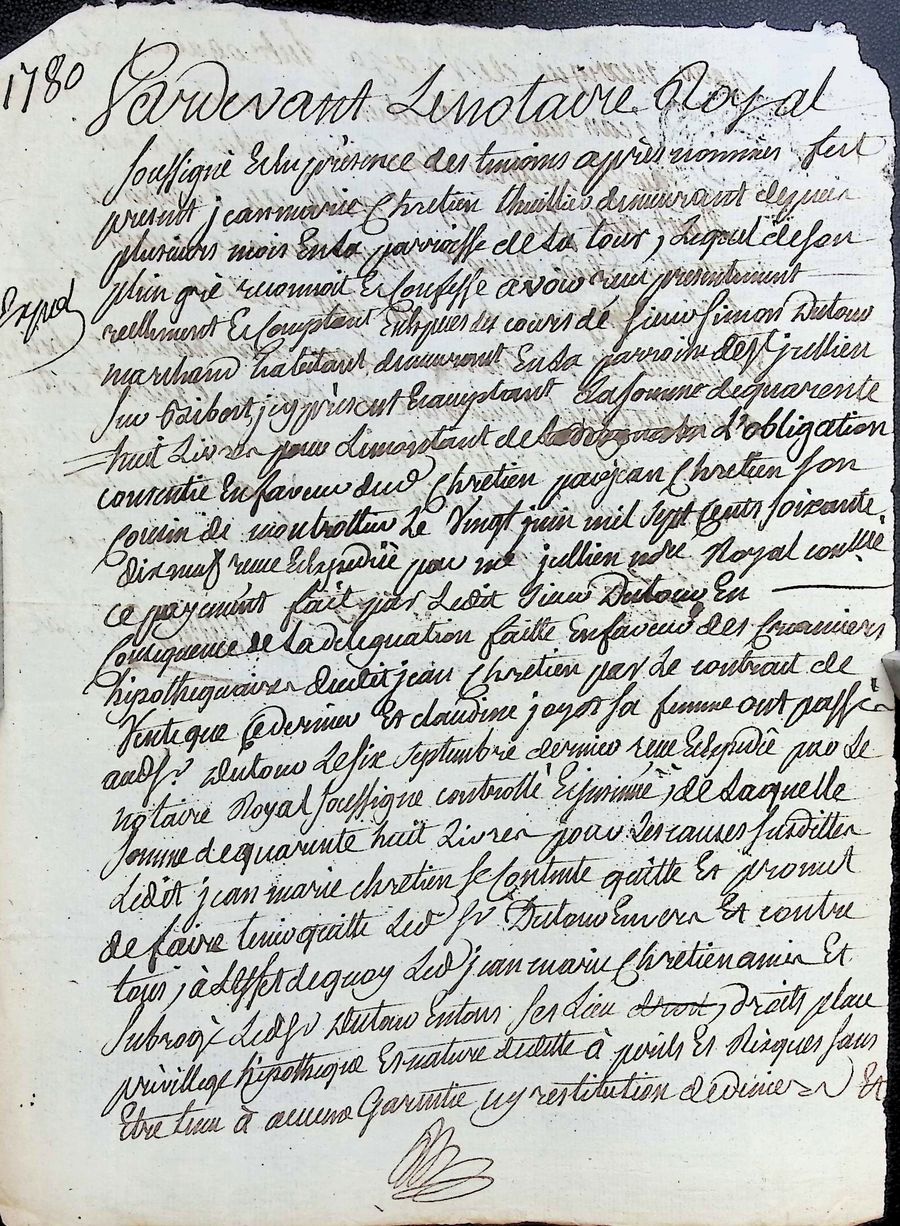 1780
Pardevant Lenotaire Royal
soussigné Et En presence des temoins après nommés fut
present jean marie Chretien thuillier demeurant depuis
plusieurs mois En la parroisse de la tour, Lequel de son
plein gré reconnoit Et Confesse avoir reçu presentement
Exped
reellement Et Comptant En Espèces des cours de sieur Simon Dutour
marchand habitant demeurant En la parroisse de St jullien
sur Bibost, icy présent Et acceptant La somme de quarente
huit Livres pour Le montant de d'obligation
consentie En faveur dud Chretien par jean Chretien son
Cousin de montrottier Le Vingt juin mil sept Cents soixante
dix neuf reçue Et Expediée par me jullien nore Royal controllé
ce payement fait par Ledit sieur Dutour En
Consequence de La deleguation faitte En faveur des Creanciers
hipothequaires dudit jean Chretien par Le contrait de
Vente que Ce dernier Et claudine joyot sa femme ont passé
audsr. Dutour Le six septembre dernier reçu Et Expedié par Le
notaire Royal soussigné controllé Et insinué, de Laquelle
somme de quarente huit Livres pour Les causes susdittes
Ledit jean marie chretien se Contente quitte Et promet
de faire tenir quitte Led sr Dutour Envers Et contre
tous, à L'effet de quoy Led jean marie Chretien a mis Et
subrogé Led sr Dutour En tous ses Lieu droit, droits place
privillege hipotheque Et nature de dette à perils Et Risques sans
Etre tenu à aucune Garentie, ny restitution de deniers Et